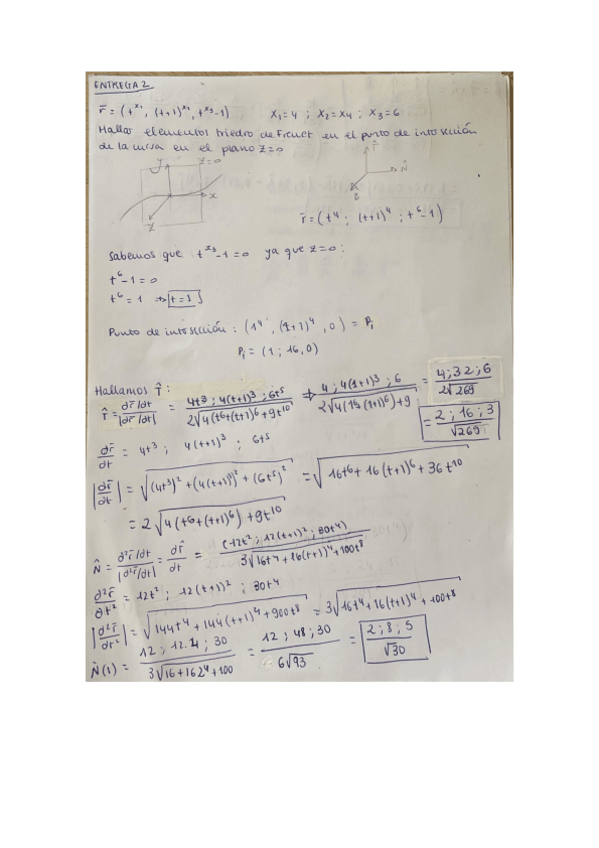 ENTREGA 2
r̄ = (t^x₁, (t+1)^x₂, t^x₃-1) X₁=4 ; X₂=X4 ; X₃=6
Hallar elementos triedro de Frenet en el punto de intersección
de la curva en el plano Z=0
y z=0 T̂
x N̂
z B̂
r̄ = (t⁴ ; (t+1)⁴ ; t⁶-1)
Sabemos que t^x₃-1=0 ya que z=0:
t⁶-1=0
t⁶=1 ⇒ t=1
Punto de intersección: (1⁴, (1+1)⁴, 0) = P₁
P₁ = (1; 16, 0)
Hallamos T̂:
T̂ = dr̄/dt / |dr̄/dt| = 4t³; 4(t+1)³; 6t⁵ / 2√(4(t⁶+(t+1)⁶)+9t¹⁰) ⇒ 4; 4(1+1)³; 6 / 2√(4(1+(1+1)⁶)+9) = 4; 32; 6 / 2√269
= 2; 16; 3 / √269
dr̄/dt = 4t³; 4(t+1)³; 6t⁵
|dr̄/dt| = √((4t³)²+(4(t+1)³)²+(6t⁵)²) = √(16t⁶+16(t+1)⁶+36t¹⁰)
= 2√(4(t⁶+(t+1)⁶)+9t¹⁰)
N̂ = d²r̄/dt / |d²r̄/dt| = dT̂/dt = (12t²; 12(t+1)²; 30t⁴) / 3√(16t⁴+16(t+1)⁴+100t⁸)
d²r̄/dt² = 12t²; 12(t+1)²; 30t⁴
|d²r̄/dt²| = √(144t⁴+144(t+1)⁴+900t⁸) = 3√(16t⁴+16(t+1)⁴+100t⁸)
N̂(1) = 12; 12.4; 30 / 3√(16+162⁴+100) = 12; 48; 30 / 6√93 = 2; 8; 5 / √30